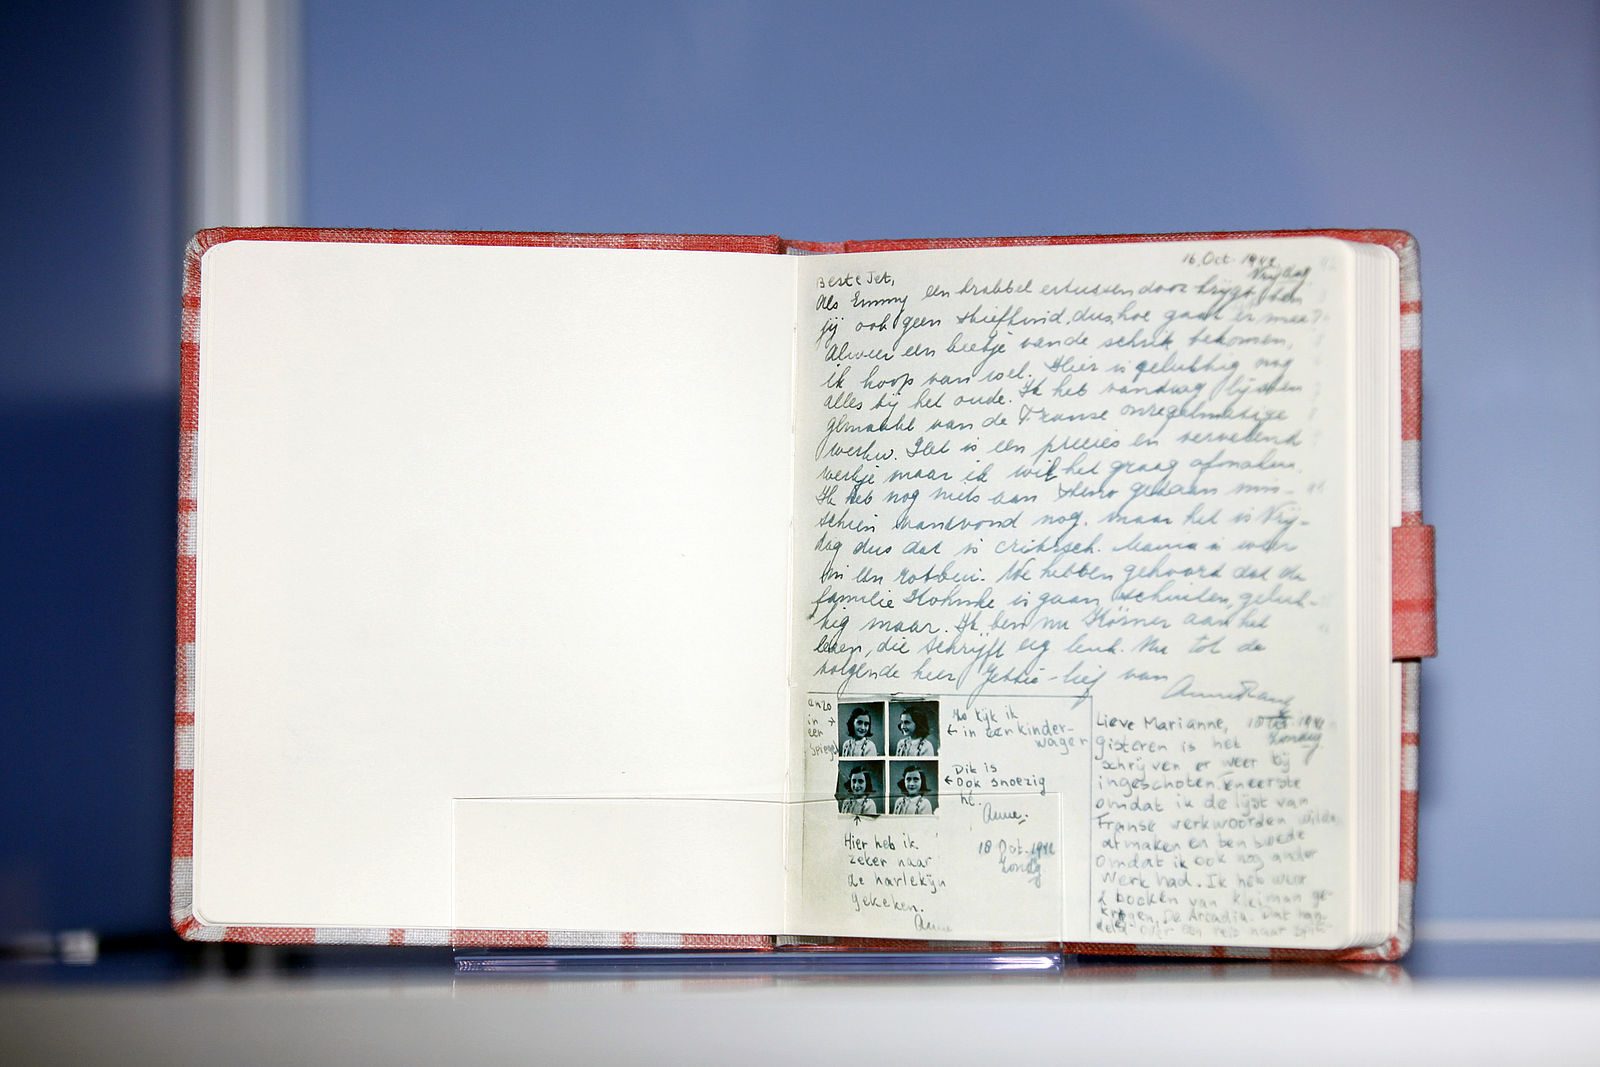 16 Oct. 1942
Vrijdag
Beste Jet,
Als Emmy een krabbel ertussendoor krijgt, ben
jij ook geen stiefkind, dus hoe gaat er mee?
Alweer een beetje van de schrik bekomen,
ik hoop van wel. Hier is gelukkig nog
alles bij het oude. Ik heb vandaag lijsten
gemaakt van de Franse onregelmatige
werkw. Het is een precies en vervelend
werkje maar ik wil het graag afmaken.
Ik heb nog niets aan Steno gedaan mis-
schien vanavond nog. maar het is Vrij-
dag dus dat is critisch. Mama is weer
in een rotbui. We hebben gehoord dat de
familie is gaan schuilen, geluk-
kig maar. Ik ben nu Körner aan het
lezen, die schrijft erg leuk. Nu tot de
volgende keer Jettie-lief van
Anne Frank
anzo
in →
een
spiegel
Zo kijk ik
← in een kinder-
wagen
Dit is
← Ook snoezig
hè.
Anne.
18 Oct. 1942
Zondag
↑
Hier heb ik
zeker naar
de harlekijn
gekeken.
Anne
Lieve Marianne, 18 Oct. 1942
Zondag.
Gisteren is het
schrijven er weer bij
ingeschoten. Teneerste
omdat ik de lijst van
Franse werkwoorden wilde
afmaken en ten tweede
omdat ik ook nog ander
werk had. Ik heb weer
2 boeken van Kleiman ge-
kregen, De Arcadia. Dat han-
delt over een reis naar Spits-